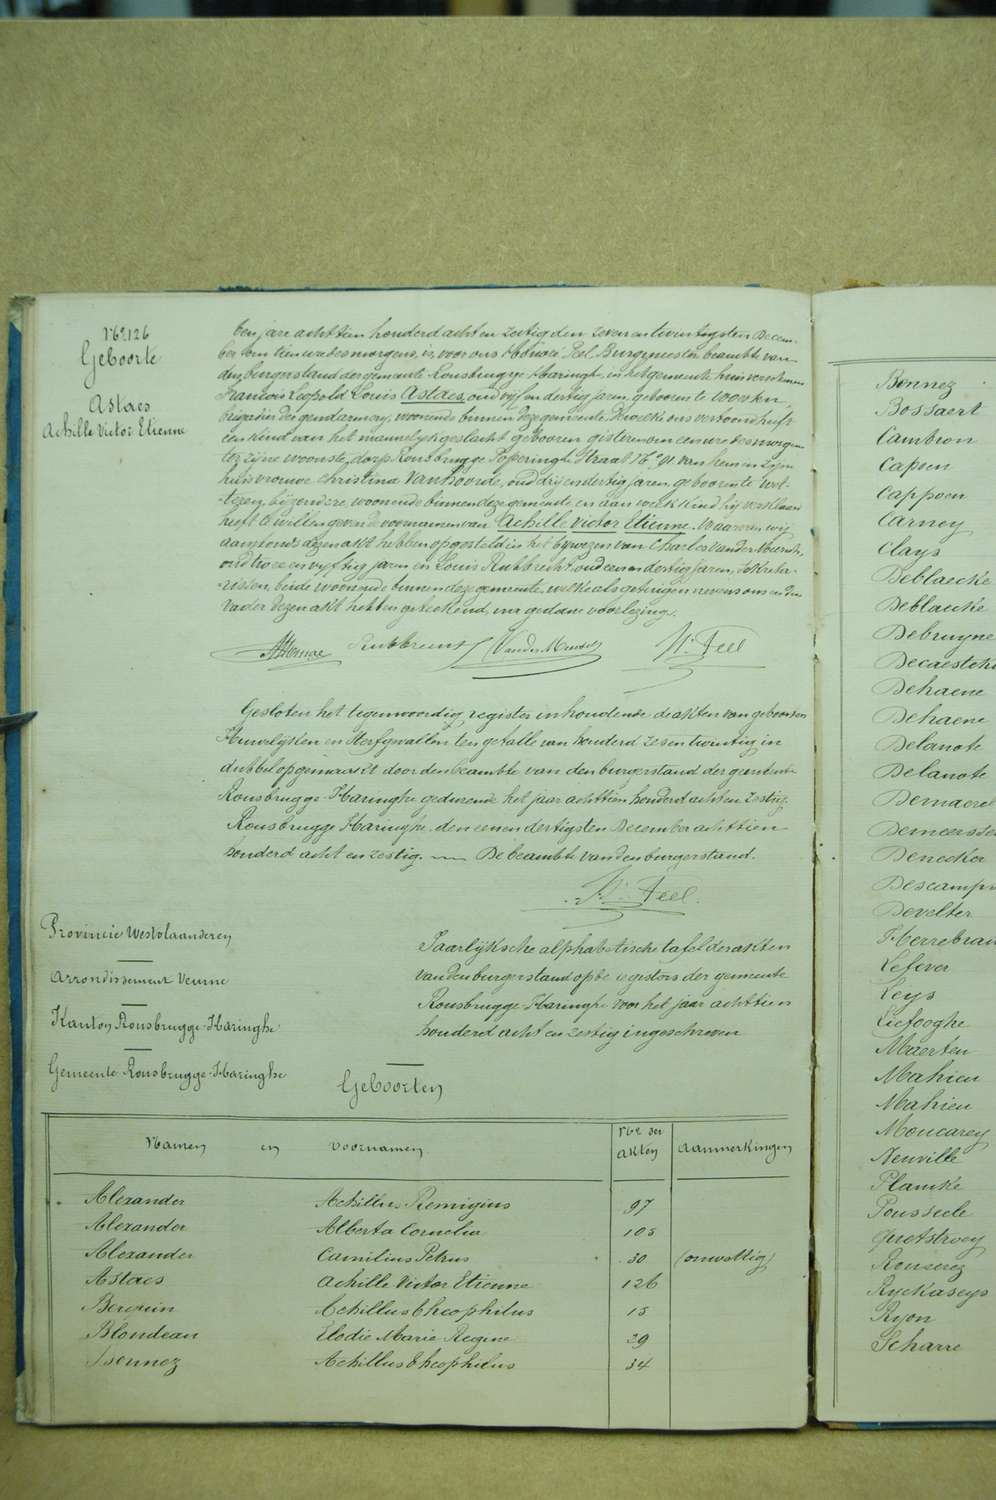 No 126
Geboorte
Astaes
Achille Victor Etienne
Ten jare achttien honderd acht en zestig den zeven en twintigsten Decem-
ber om tien ure des morgens, is, voor ons Honoré Feel Burgmeester beambte van
den burgerstand der gemeente Rousbrugge-Haringhe, in het gemeente huis verschenen
Francois Leopold Louis Astaes, oud vijf en dertig jaren, geboren te Voorten,
brigadier der gendarmery, woonende binnen deze gemeente, dewelke ons vertoond heeft
een kind van het mannelijk geslacht, geboren gisteren om een ure des morgens
ter zijne woonste, dorp Rousbrugge Poperinghe Straat No 91. van hem en zyne
huisvrouwe Christina Van Boorde, oud dry en dertig jaren, geboren te Wel-
tezen, bijzondere woonende binnen deze gemeente, en aan welk kind hij verklaard
heeft te willen geven de voornamen van Achille Victor Etienne. Waarvan wij
aanstonds dezen akt hebben opgesteld in het bywezen van Charles Vander Meersch,
oud twee en vyftig jaren en Louis Rubbrecht, oud een en dertig jaren, sekreta-
rissen, beide woonende binnen deze gemeente, welke als getuigen nevens ons en den
Vader dezen akt hebben geteekend, na gedane voorlezing.
Rubbrecht VanderMeersch H. Feel
Gesloten het tegenwoordig register inhoudende de akten van geboorten
Huwelijken en Sterfgevallen ten getalle van honderd zes en twintig in
dubbel opgemaakt door den beambte van den burgerstand der gemeente
Rousbrugge-Haringhe gedurende het jaar achttien honderd acht en zestig.
Rousbrugge Haringhe, den eenen dertigsten December achttien
honderd acht en zestig. De beambte van den burgerstand.
H. Feel
Provincie Westvlaanderen
Arrondissement Veurne
Kanton Rousbrugge-Haringhe
Gemeente Rousbrugge-Haringhe
Jaarlijksche alphabetische tafel der akten
van den burgerstand op de registers der gemeente
Rousbrugge-Haringhe voor het jaar achttien
honderd acht en zestig ingeschreven
Geboorten
Namen en voornamen No der akten aanmerkingen
Alexander Achillus Remigius 97
Alexander Alberta Cornelia 105
Alexander Camilius Petrus 30 (onwettig)
Astaes Achille Victor Etienne 126
Berquin Achillus Theophilus 15
Blondeau Elodie Marie Regine 39
Bonnez Achillus Theophilus 34
Bonnez
Bossaert
Cambron
Capoen
Cappoen
Carney
Clays
Deblaecke
Deblaucke
Debruyne
Decaesteke
Dehaene
Dehaene
Delanote
Delanote
Demaerel
Demeerste
Denecker
Descamps
Develter
Herrebrau
Lefever
Leys
Liefooghe
Maerten
Mahieu
Mahieu
Moucarey
Neuville
Plancke
Pousseele
Quetstroey
Rouserez
Ryckaseys
Ryon
Scharre